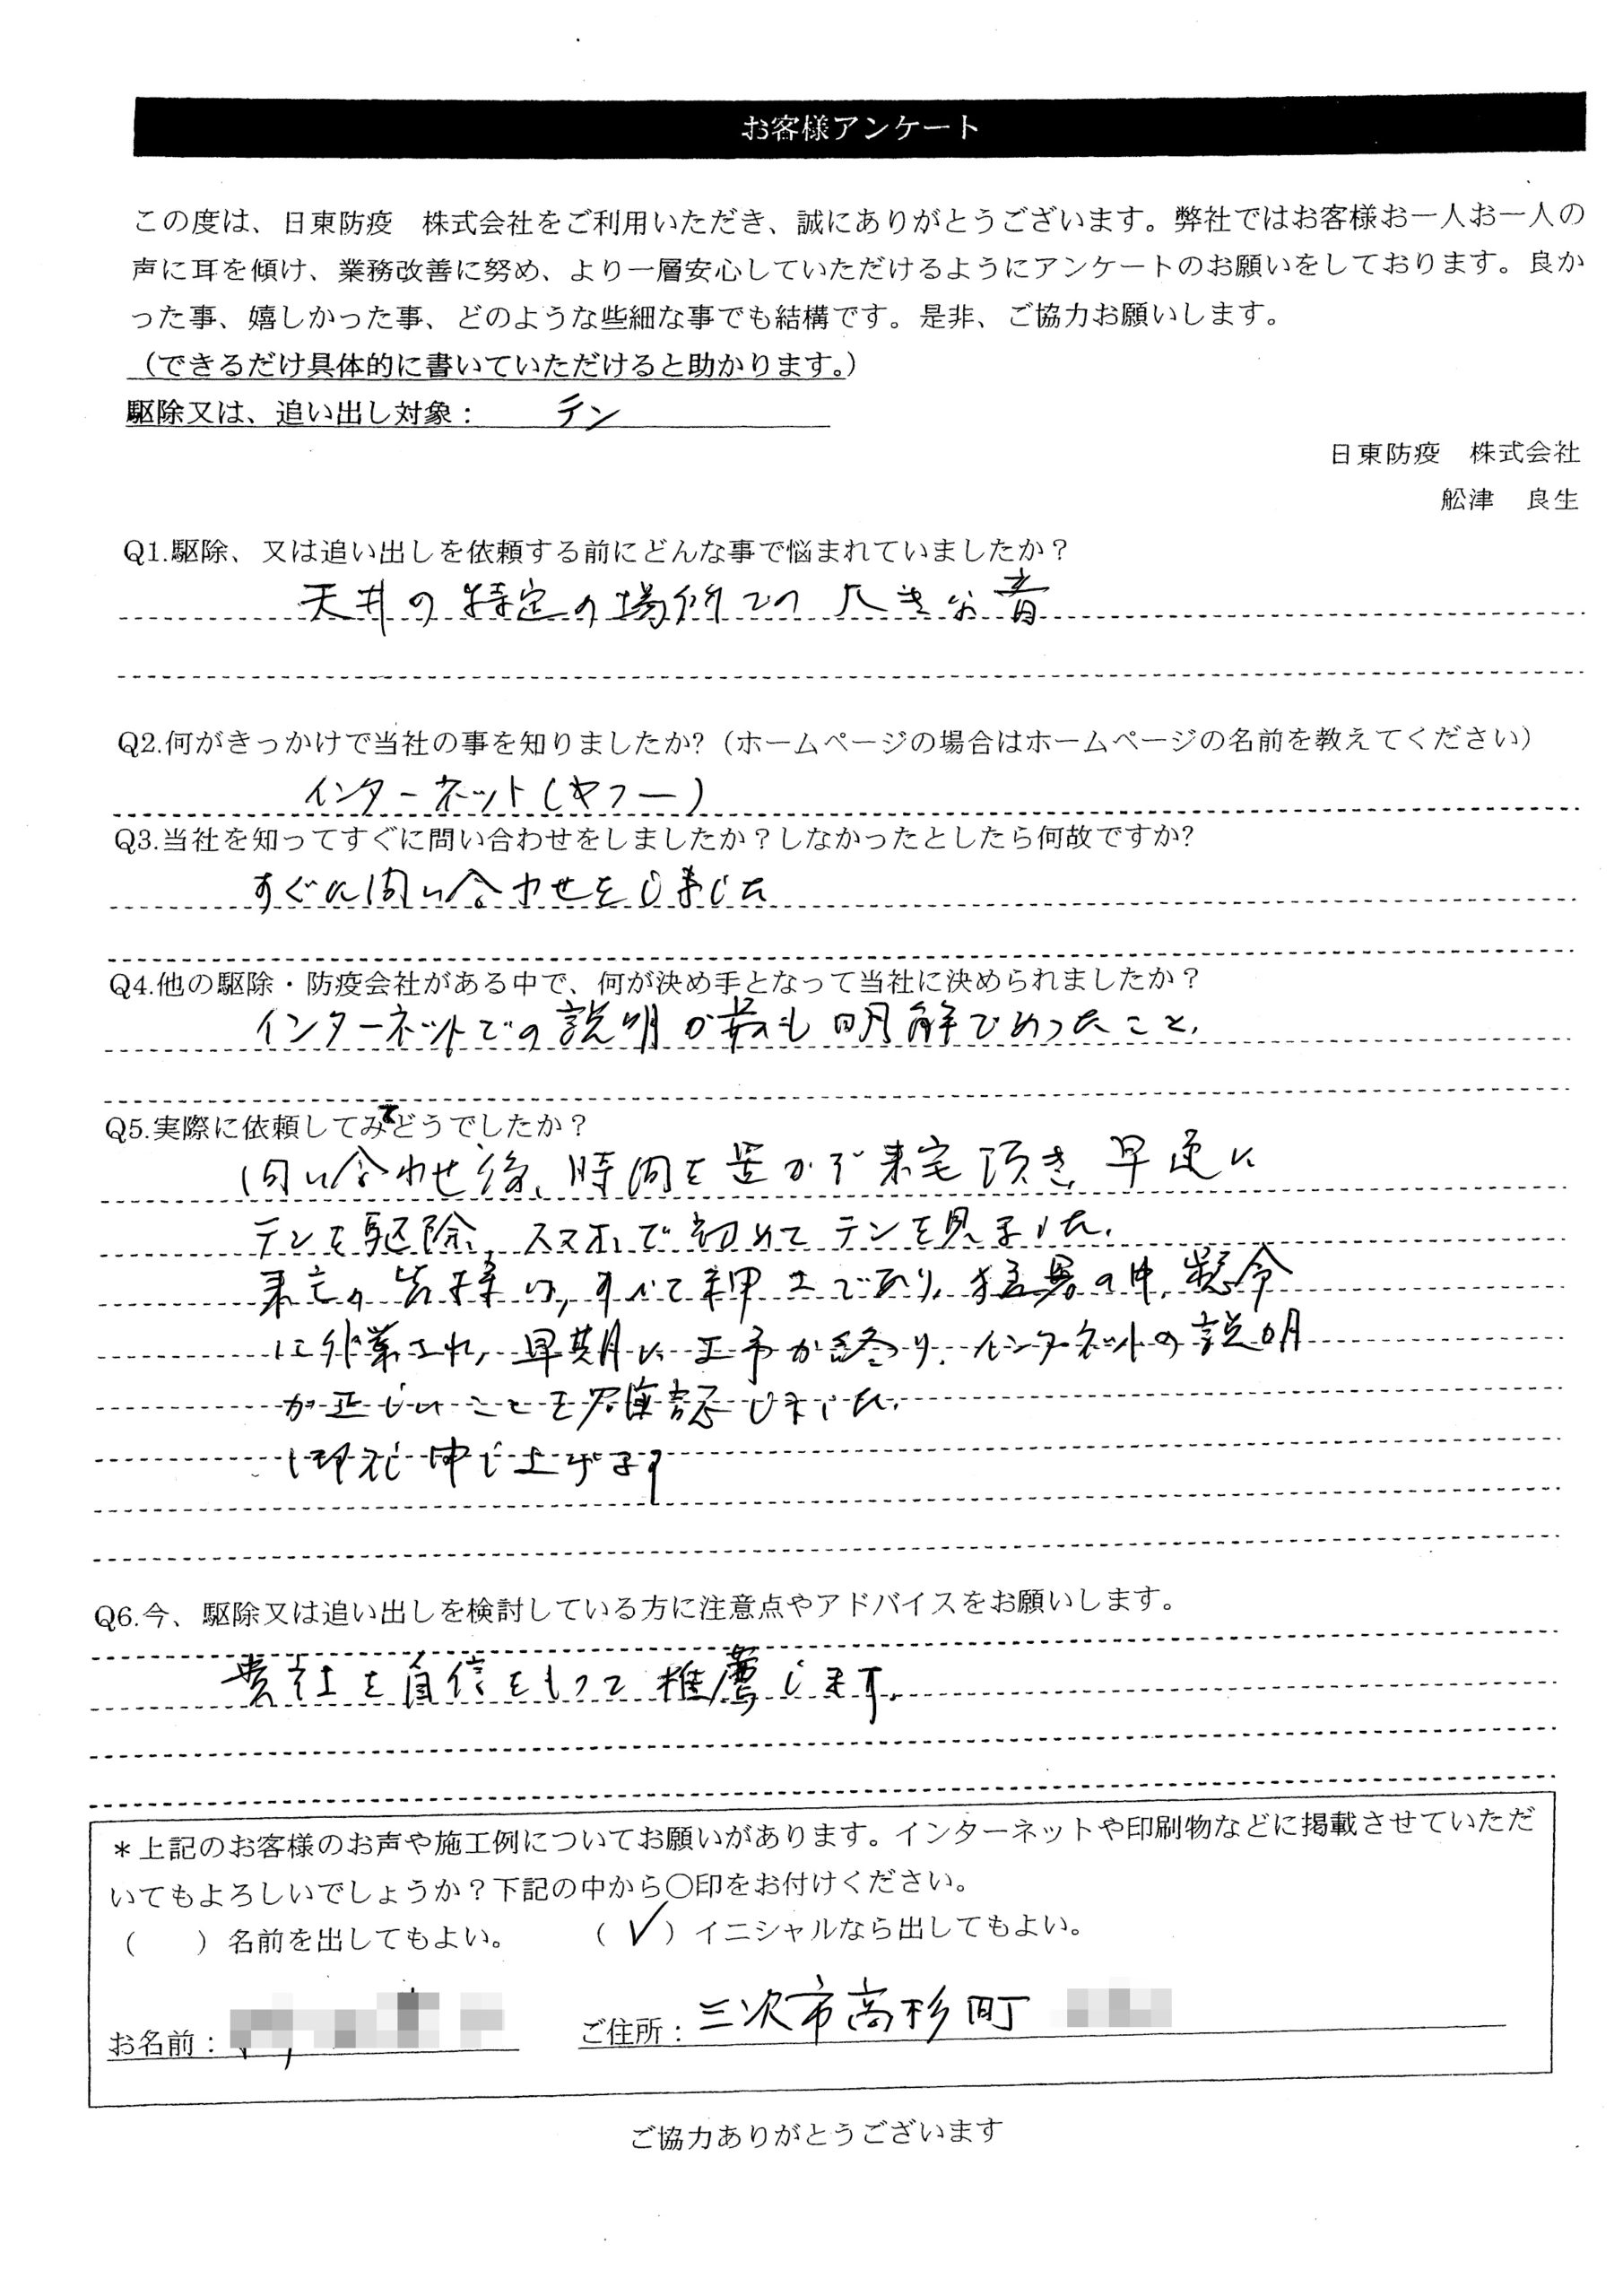 お客様アンケート
この度は、日東防疫　株式会社をご利用いただき、誠にありがとうございます。弊社ではお客様お一人お一人の
声に耳を傾け、業務改善に努め、より一層安心していただけるようにアンケートのお願いをしております。良か
った事、嬉しかった事、どのような些細な事でも結構です。是非、ご協力お願いします。
（できるだけ具体的に書いていただけると助かります。）
駆除又は、追い出し対象：　テン
日東防疫　株式会社
舩津　良生
Q1.駆除、又は追い出しを依頼する前にどんな事で悩まれていましたか？
天井の特定の場所での大きな音
Q2.何がきっかけで当社の事を知りましたか?（ホームページの場合はホームページの名前を教えてください）
インターネット(ヤフー)
Q3.当社を知ってすぐに問い合わせをしましたか？しなかったとしたら何故ですか?
すぐに問い合わせをしました
Q4.他の駆除・防疫会社がある中で、何が決め手となって当社に決められましたか？
インターネットでの説明が最も明解であったこと、
Q5.実際に依頼してみてどうでしたか？
問い合わせ後、時間を置かず来宅頂き、早速に
テンを駆除、スマホで初めてテンを見ました。
来宅の皆様は、すべて紳士であり、猛暑の中、懸命
に作業され、早期に工事が終り、インターネットの説明
が正しいことを確認しました。
御礼申し上げます
Q6.今、駆除又は追い出しを検討している方に注意点やアドバイスをお願いします。
貴社を自信をもって推薦します。
＊上記のお客様のお声や施工例についてお願いがあります。インターネットや印刷物などに掲載させていただ
いてもよろしいでしょうか？下記の中から〇印をお付けください。
（　　）名前を出してもよい。　（✓）イニシャルなら出してもよい。
お名前：　ご住所：三次市高杉町
ご協力ありがとうございます